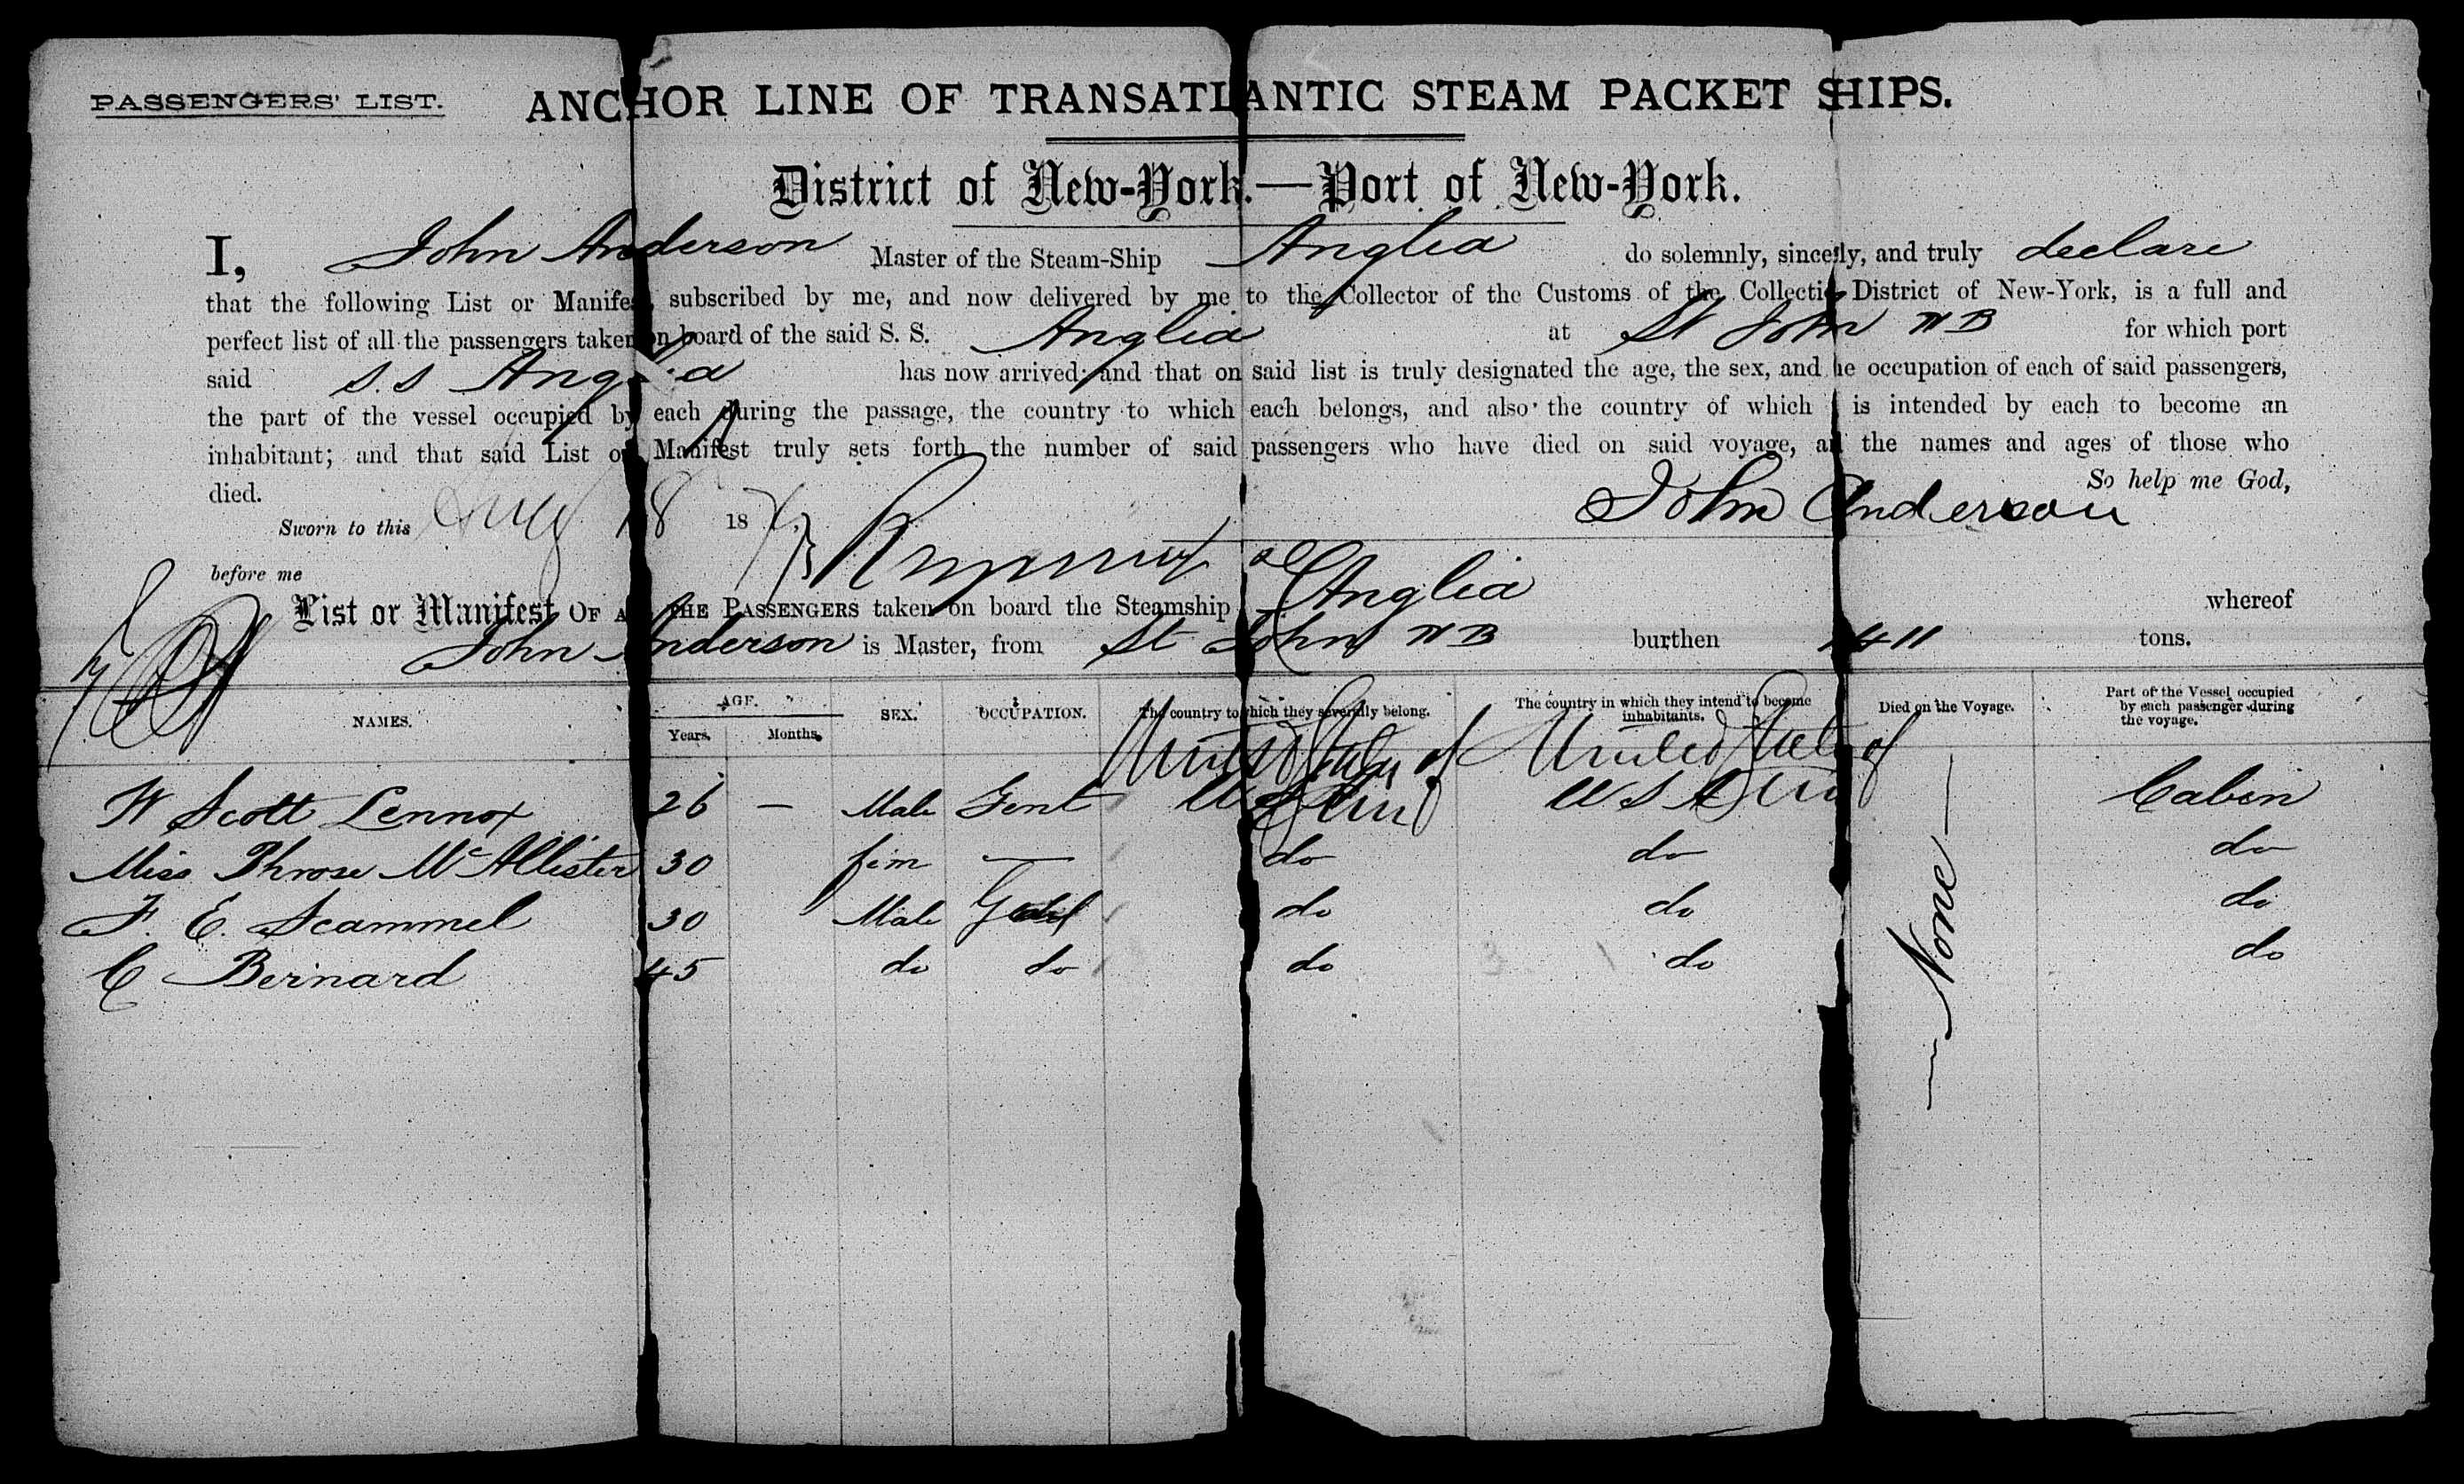 PASSENGERS' LIST. ANCHOR LINE OF TRANSATLANTIC STEAM PACKET SHIPS.
District of New-York.—Port of New-York.
I, John Anderson Master of the Steam-Ship Anglia do solemnly, sincerely, and truly declare
that the following List or Manifest, subscribed by me, and now delivered by me to the Collector of the Customs of the Collection District of New-York, is a full and
perfect list of all the passengers taken on board of the said S. S. Anglia at St John NB for which port
said S.S Anglia has now arrived; and that on said list is truly designated the age, the sex, and the occupation of each of said passengers,
the part of the vessel occupied by each during the passage, the country to which each belongs, and also the country of which it is intended by each to become an
inhabitant; and that said List or Manifest truly sets forth the number of said passengers who have died on said voyage, and the names and ages of those who
died. So help me God,
Sworn to this Aug 18 187 John Anderson
before me
List or Manifest OF ALL THE PASSENGERS taken on board the Steamship Anglia whereof
John Anderson is Master, from St John NB burthen 1411 tons.
NAMES. AGE. Years. Months. SEX. OCCUPATION. The country to which they severally belong. The country in which they intend to become inhabitants. Died on the Voyage. Part of the Vessel occupied by each passenger during the voyage.
United States of United States of
W Scott Lennox 26 — Male Gent U S A U S A Cabin
Miss McAllister 30 fem — do do do
F. E. Scammel 30 Male do do do
C Bernard 45 do do do do do
— None —